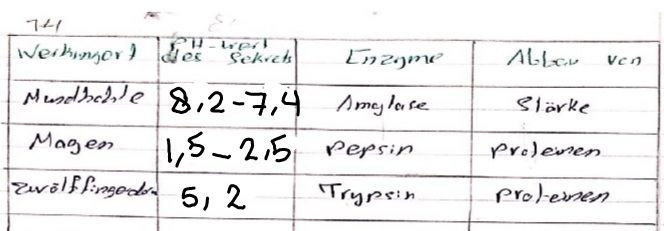 Wirkungort pH-wert des Sekrets Enzyme Abbau von
Mundhöhle 8,2-7,4 Amylase Stärke
Magen 1,5-2,5 Pepsin Proteinen
Zwölffingerdarm 5,2 Trypsin Proteinen